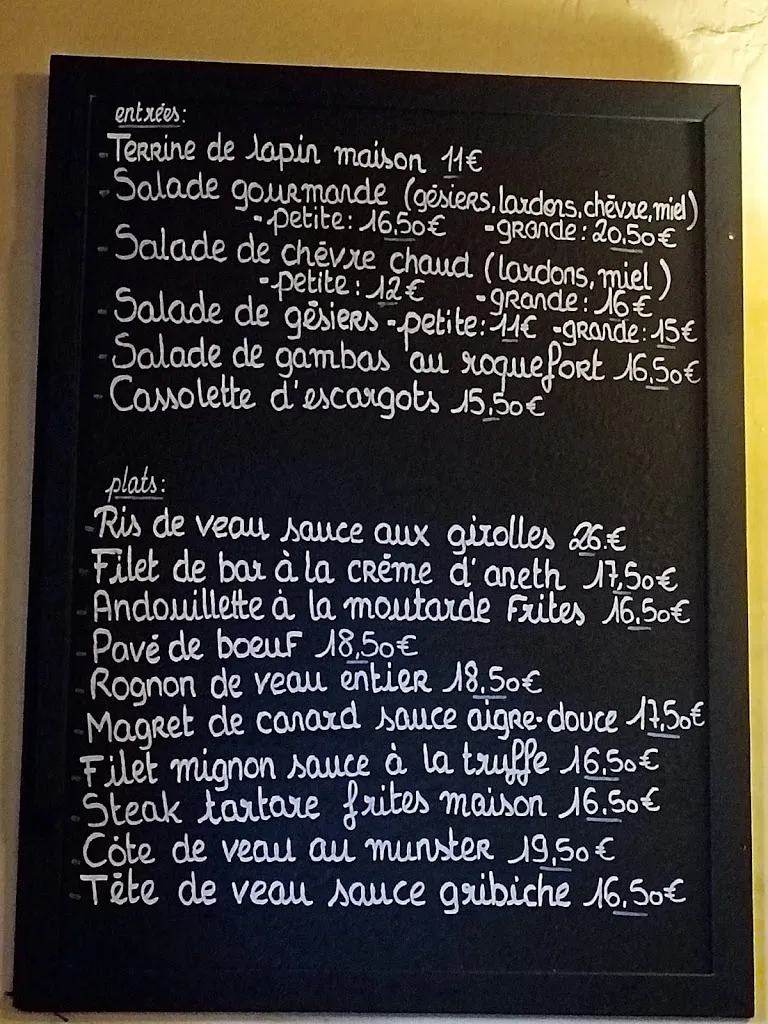 entrées:
- Terrine de lapin maison 11€
- Salade gourmande (gésiers, lardons, chèvre, miel)
- petite: 16,50€ - grande: 20,50€
- Salade de chévre chaud (lardons, miel)
- petite: 12€ - grande: 16€
- Salade de gésiers - petite: 11€ - grande: 15€
- Salade de gambas au roquefort 16,50€
- Cassolette d'escargots 15,50€
plats:
- Ris de veau sauce aux girolles 26.€
- Filet de bar à la créme d'aneth 17,50€
- Andouillette à la moutarde Frites 16,50€
- Pavé de boeuf 18,50€
- Rognon de veau entier 18,50€
- Magret de canard sauce aigre-douce 17,50€
- Filet mignon sauce à la truffe 16,50€
- Steak tartare frites maison 16,50€
- Côte de veau au munster 19,50€
- Tête de veau sauce gribiche 16,50€